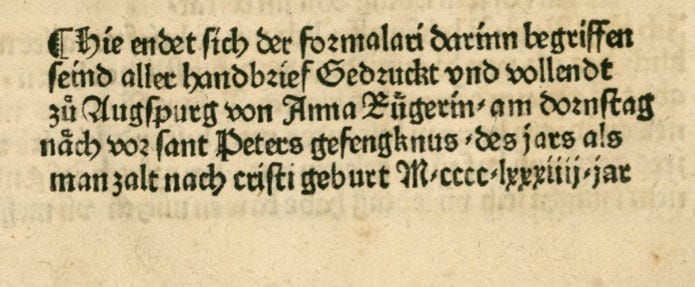 ¶ Hie endet sich der formalari darinn begriffen
seind aller handbrief Gedruckt vnd vollendt
zů Augspurg von Anna Růgerin· am dornstag
nåch vor sant Peters gefengknus ·des jars als
man zalt nach cristi geburt M·cccc·lxxxiiij·jar